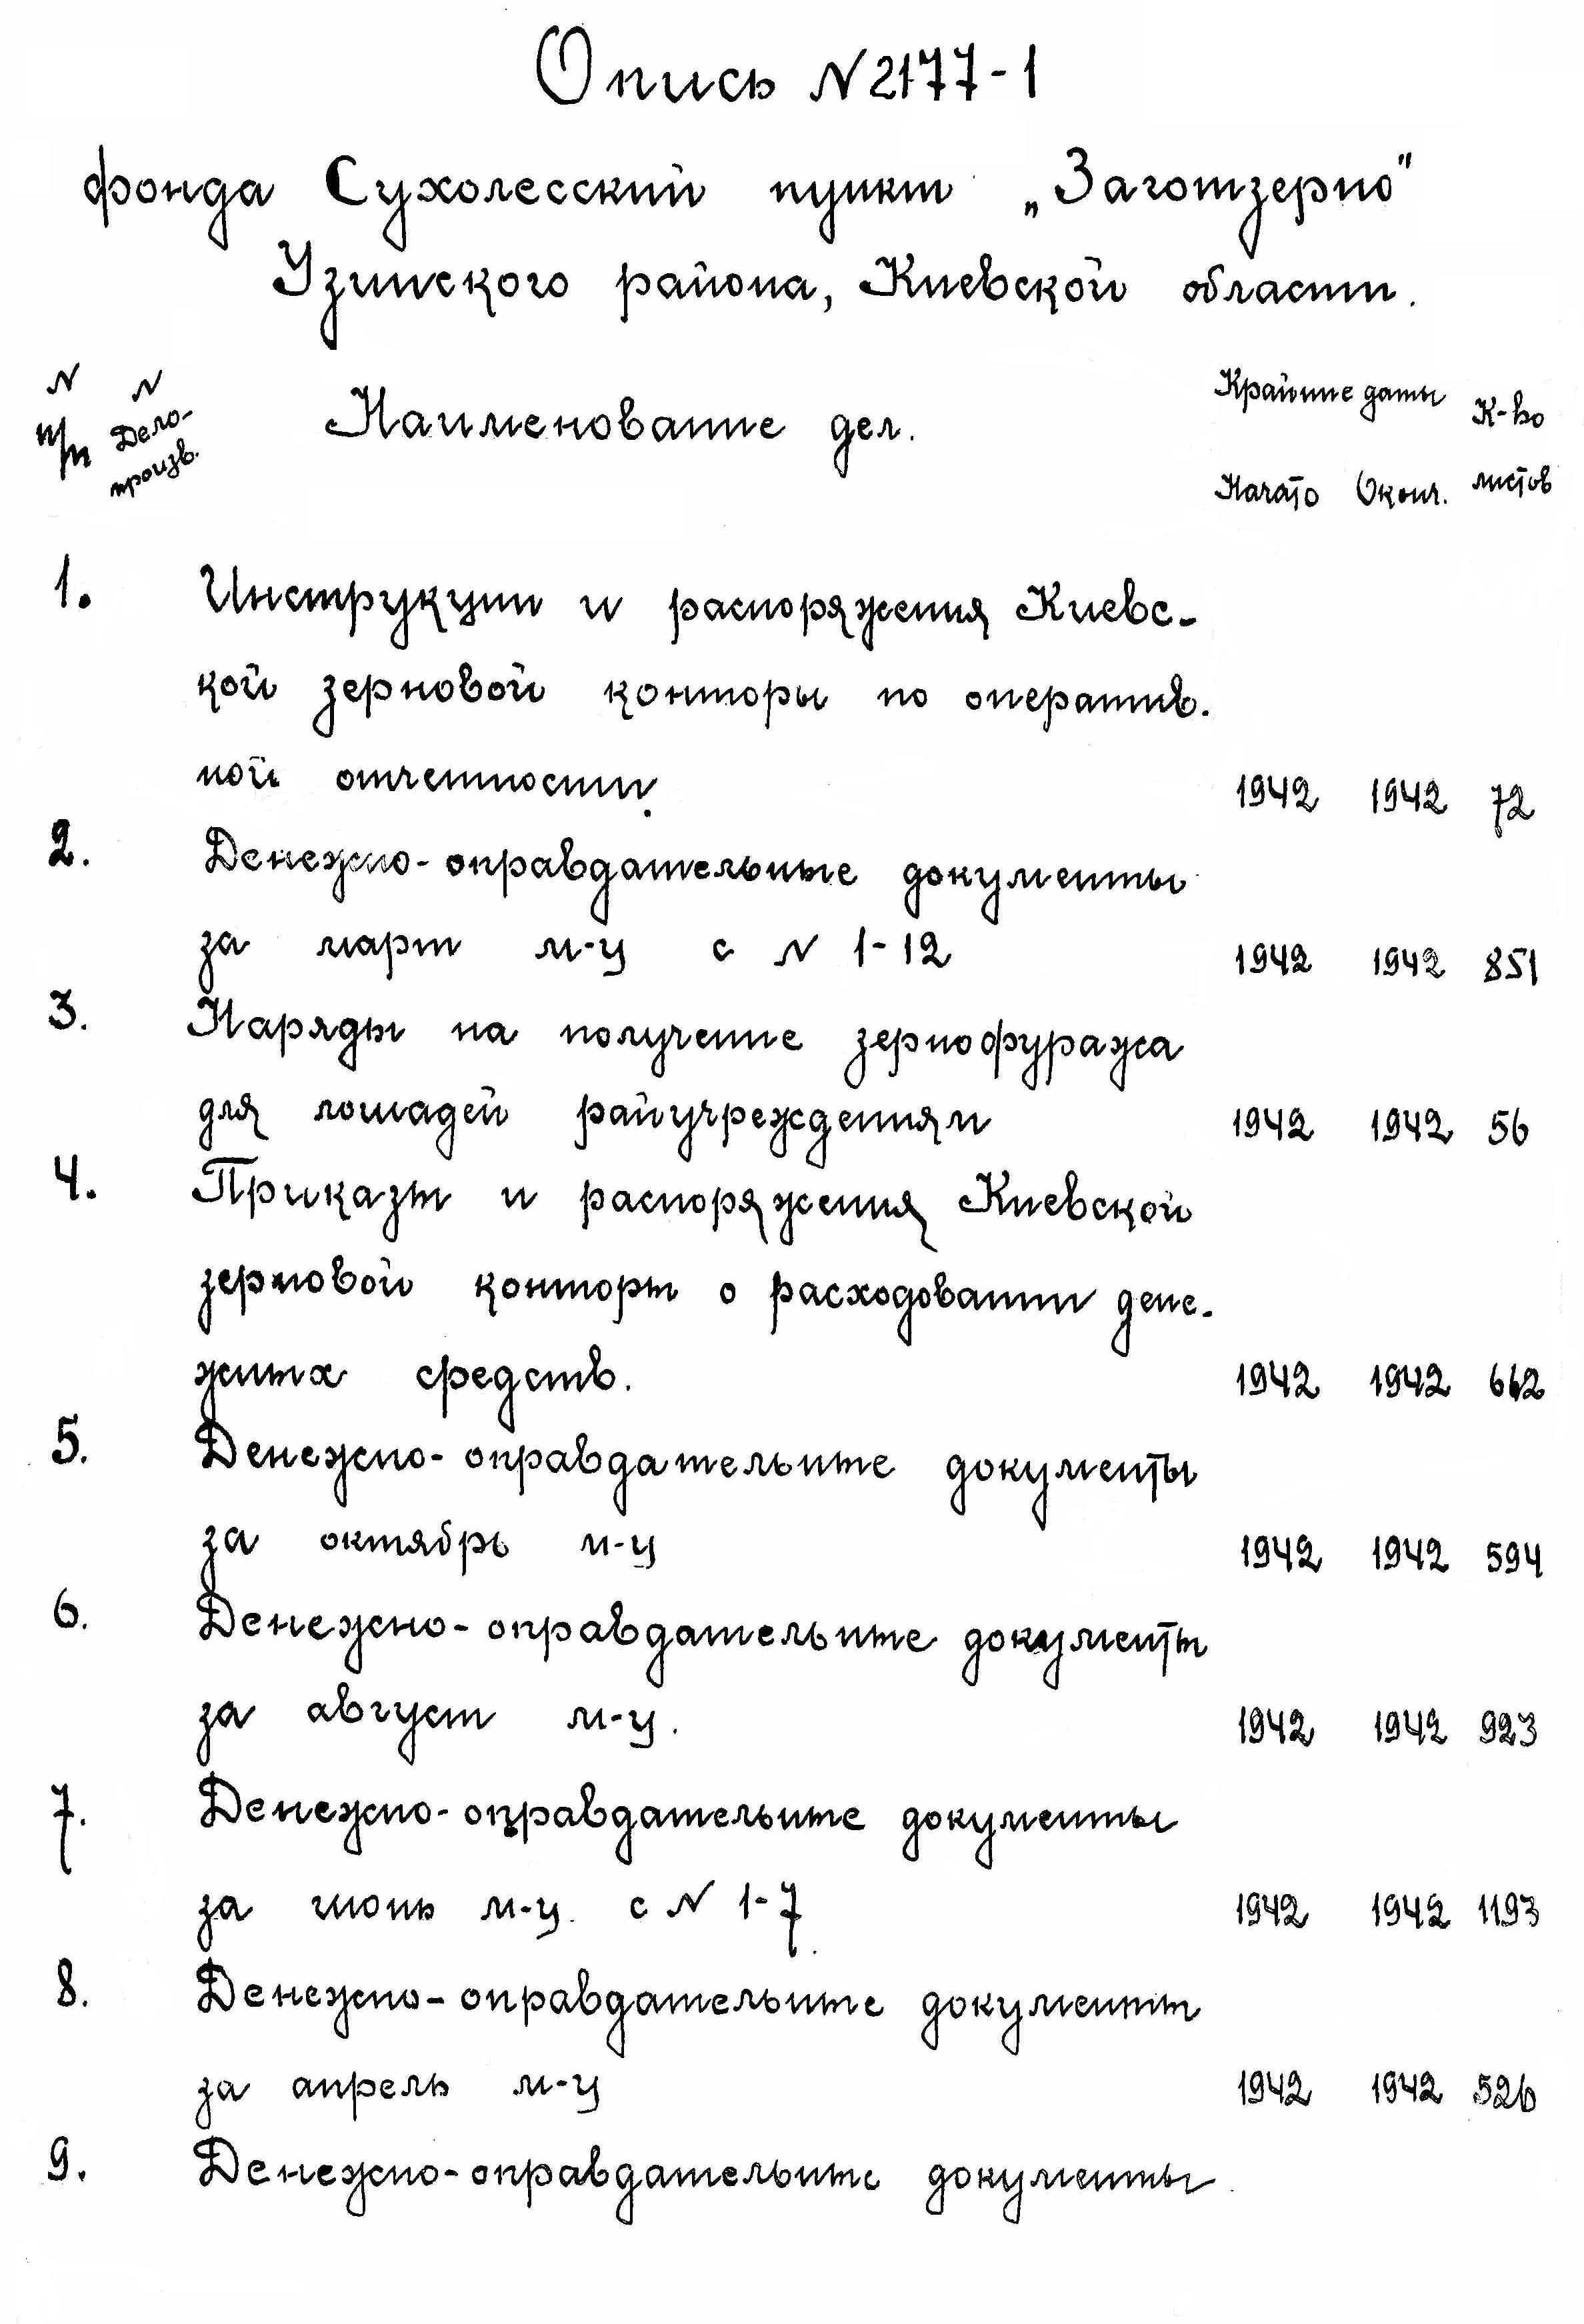 Опись N 2177-1
фонда Сухолесский пункт „Заготзерно"
Узинского района, Киевской области.
N п/п
N Дело-
произв.
Наименование дел.
Крайние даты
К-во
Начато Оконч. листов
1. Инструкции и распоряжения Киевс-
кой зерновой конторы по оператив.
ной отчетности. 1942 1942 72
2. Денежно-оправдательные документы
за март м-ц с N 1-12 1942 1942 851
3. Наряды на получение зернофуража
для лошадей райучреждениям 1942 1942 56
4. Приказы и распоряжения Киевской
зерновой конторы о расходовании дене-
жных средств. 1942 1942 662
5. Денежно-оправдательные документы
за октябрь м-ц 1942 1942 594
6. Денежно-оправдательные документы
за август м-ц. 1942 1942 923
7. Денежно-оправдательные документы
за июнь м-ц. с N 1-7. 1942 1942 1193
8. Денежно-оправдательные документы
за апрель м-ц 1942 1942 526
9. Денежно-оправдательные документы